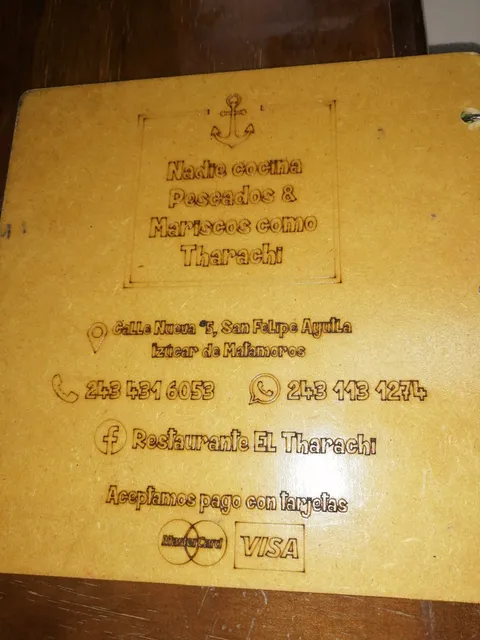 Nadie cocina
Pescados &
Mariscos como
Tharachi
Calle Nueva #5, San Felipe Ayutla
Izúcar de Matamoros
243 431 6053
243 113 1274
Restaurante EL Tharachi
Aceptamos pago con tarjetas
MasterCard
VISA